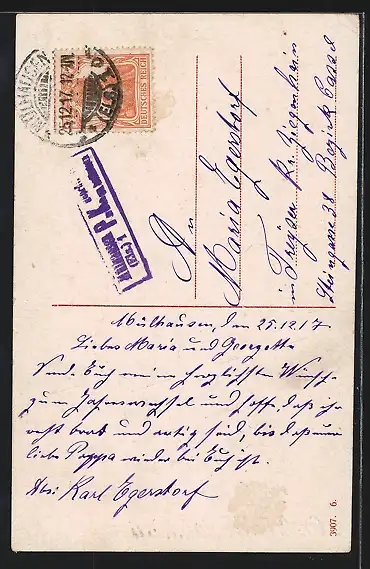 MÜLHAUSEN
25.12.17.12-1N
(ELS)
DEUTSCHES REICH
P.K.
An
Maria Egerstorf
in Treysa Kr. Ziegenhain
Steingasse 38 Bezirk Cassel
Mülhausen, den 25.12.17
Liebe Maria und Georgette
Sende Euch meine herzlichsten Wünsche
zum Jahreswechsel und hoffe, daß ihr
recht brav und artig seid, bis daß euer
liebe Pappa wieder bei Euch ist.
Karl Egerstorf
3907. 6.